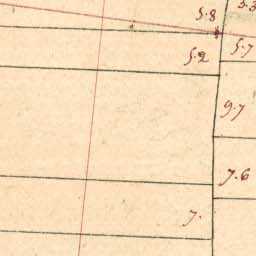 5.8
5.2
5.7
9.7
7.6
7.